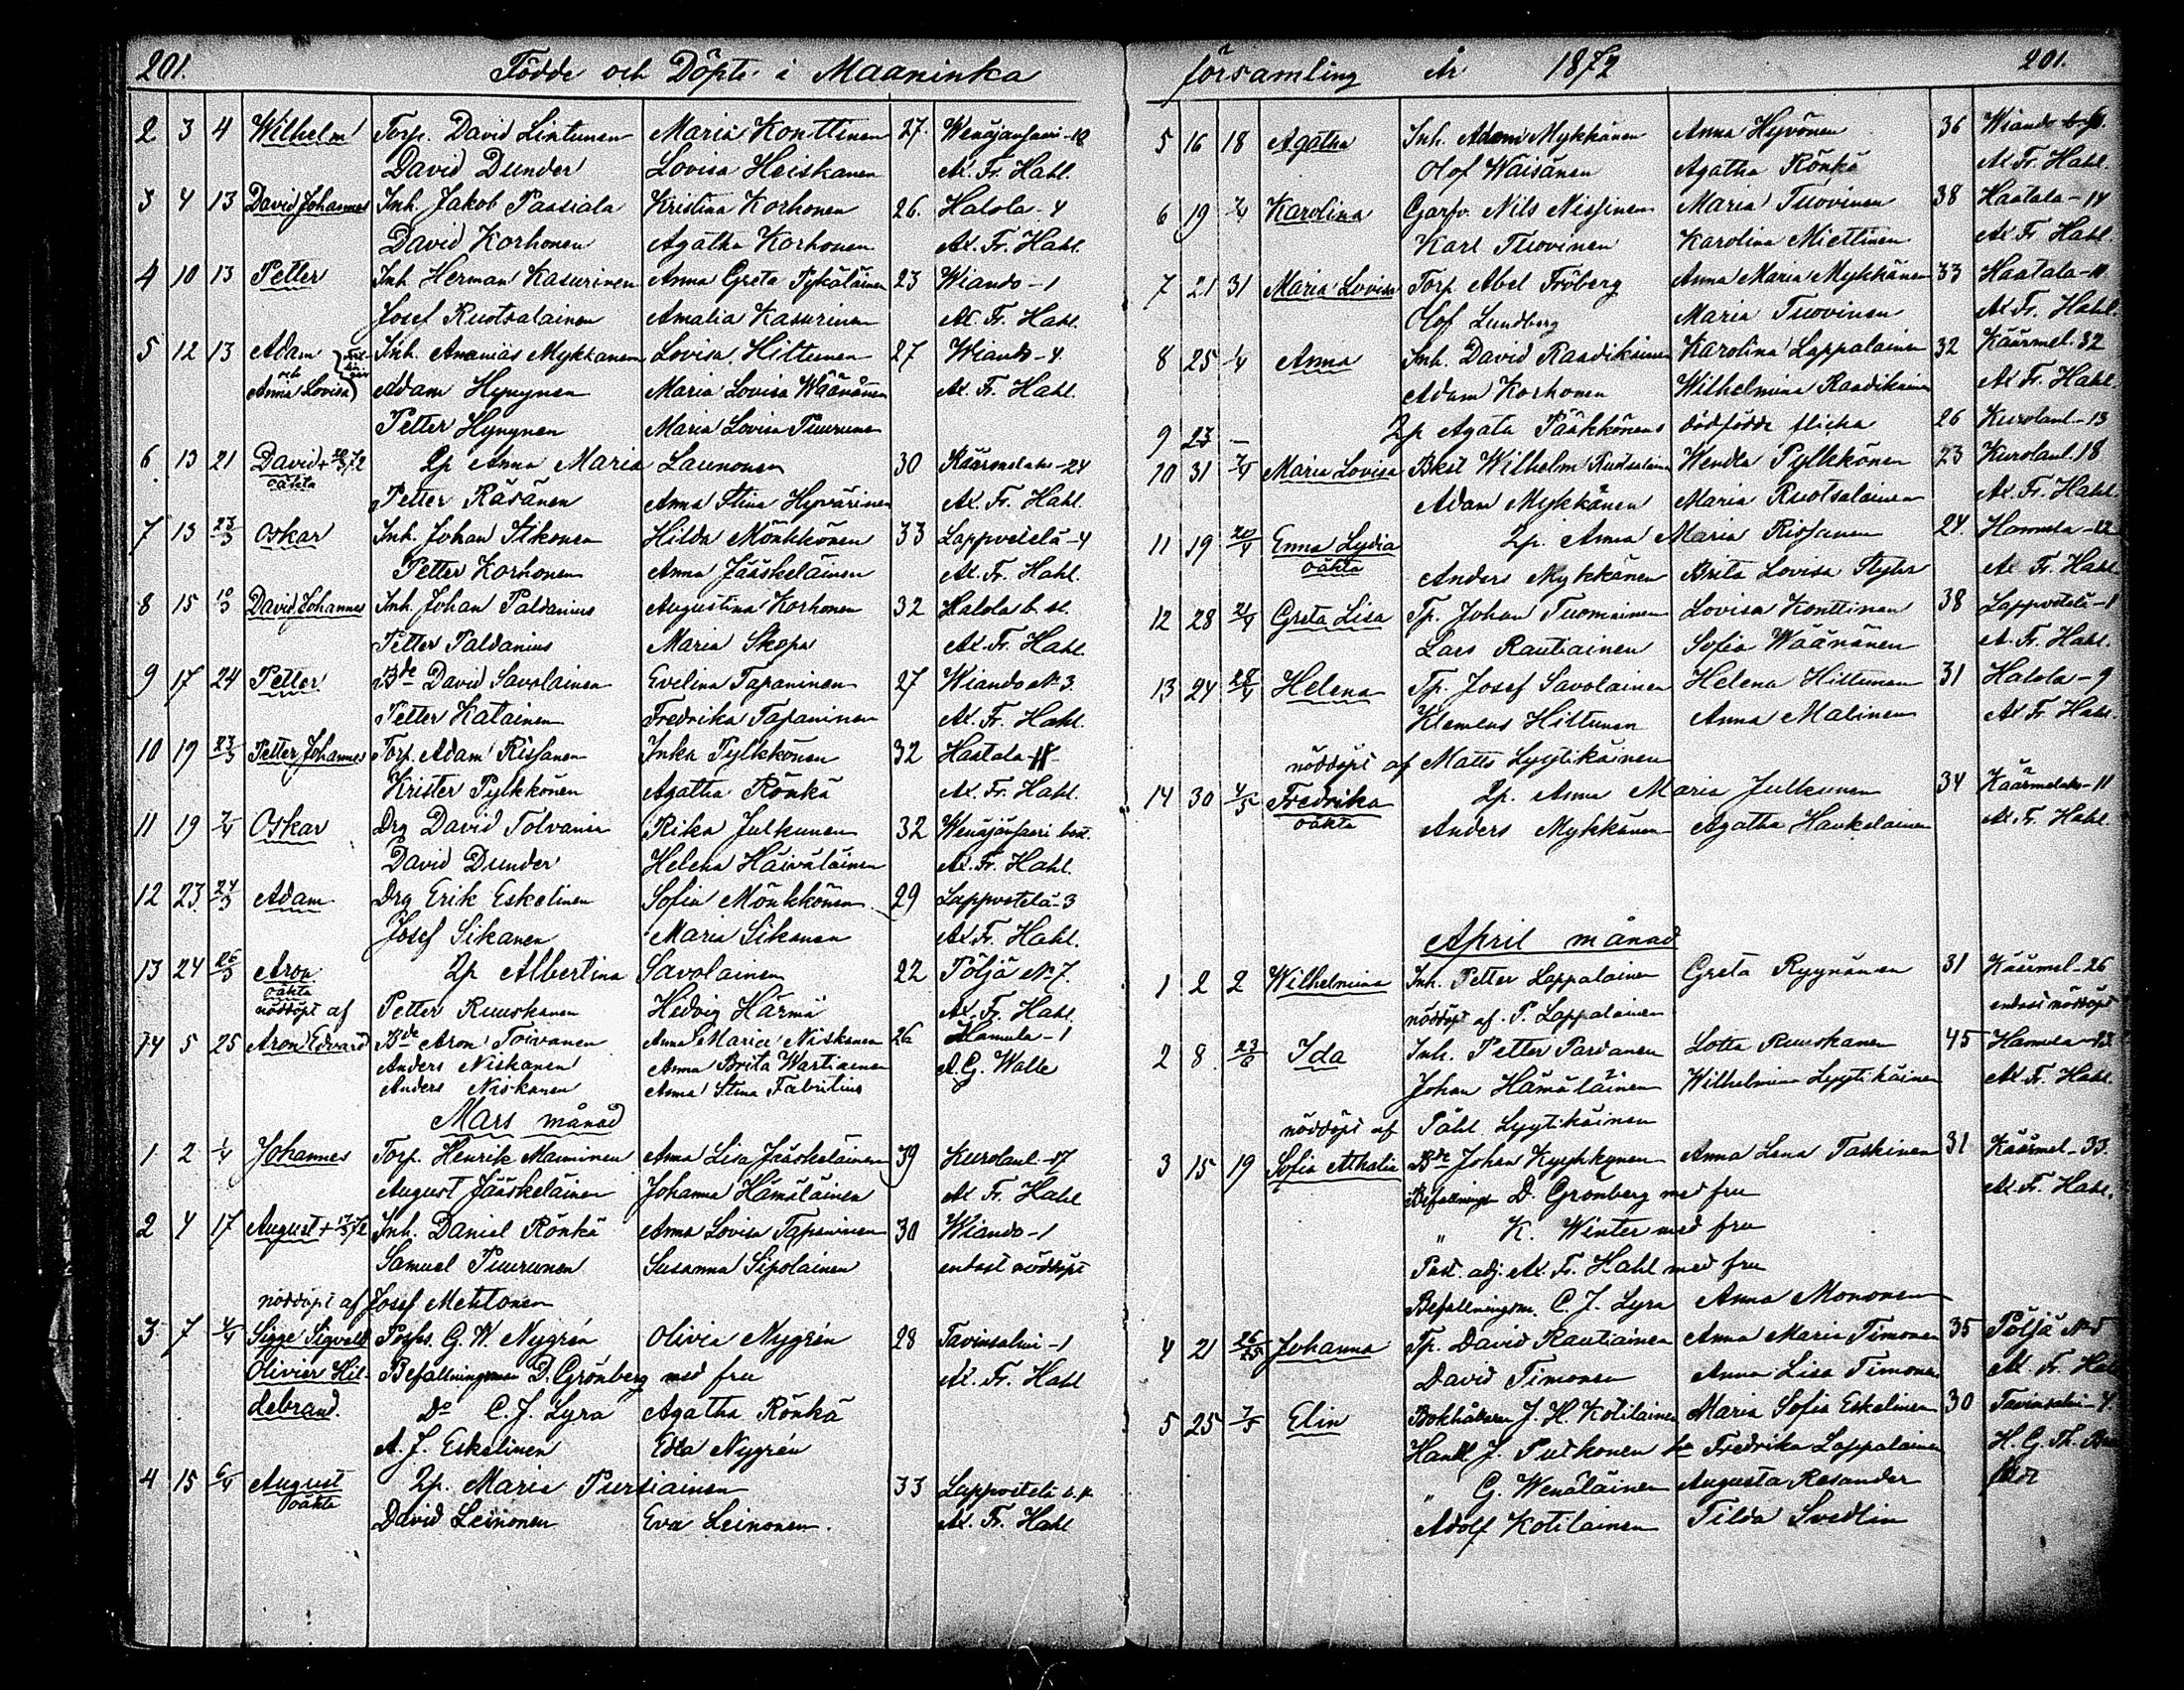 201. Födde och Döpte i Maaninka
2 3 4 Wilhelm Torp. David Lintunen Maria Konttinen 27. Wenäjänsaari-10
David Dunder Lovisa Heiskanen Ax. Fr. Hahl.
3 4 13 David Johannes Inh. Jakob Passiala Kristina Korhonen 26. Halola-4
David Korhonen Agatha Korhonen Ax. Fr. Hahl.
4 10 13 Petter Inh Herman Kasurinen Anna Greta Pykäläinen 23 Wiando-1
Josef Ruotsalainen Amalia Kasurinen Ax. Fr. Hahl.
5 12 13 Adam Inh. Ananias Mykkänen Lovisa Hiltunen 27 Wiando-4.
och Anna Lovisa Adam Hynynen Maria Lovisa Wäänänen Ax. Fr. Hahl.
Petter Hynynen Maria Lovisa Puurunen
6 13 21 David + 20/3 72 Lp Anna Maria Launonen 30 Käärmelaks-24
oäkta Petter Räsänen Anna Stina Hyvärinen Ax. Fr. Hahl.
7 13 23/3 Oskar Inh. Johan Ikonen Hilda Mönkkönen 33 Lappvetelä-4
Petter Korhonen Anna Jääskeläinen Ax. Fr. Hahl.
8 15 10/3 David Johannes Inh. Johan Paldanius Augustina Korhonen 32 Halola b. st.
Petter Paldanius Maria Skopa Ax. Fr. Hahl.
9 17 24 Petter Bde David Savolainen Evelina Tapaninen 27 Wiando No 3.
Petter Katainen Fredrika Tapaninen Ax. Fr. Hahl.
10 19 23/3 Petter Johannes Torp. Adam Rissanen Inka Pylkkönen 32 Haatala-18
Krister Pylkkönen Agatha Rönkä Ax. Fr. Hahl.
11 19 7/4 Oskar Drg David Tolvanen Rika Julkunen 32 Wenäjänsaari bost.
David Dunder Helena Häiväläinen Ax. Fr. Hahl.
12 23. 24/3 Adam Drg Erik Eskelinen Sofia Mönkkönen 29 Lappvetelä-3
Josef Sikanen Maria Sikanen Ax. Fr. Hahl.
13 24 26/3 Aron Lp Albertina Savolainen 22 Pöljä No 7.
oäkta
nöddöpt af Petter Ruuskanen Hedvig Härmä Ax. Fr. Hahl.
14 5 25 Aron Edvard Bde Aron Toivanen Anna Maria Niskanen 26 Hamula-1
Anders Niskanen Anna Brita Wartiainen A. G. Walle
Anders Niskanen Anna Stina Fabritius
Mars månad
1 2 1/4 Johannes Torp. Henrik Manninen Anna Lisa Jääskeläinen 39 Kurolanl-17
August Jääskeläinen Johanna Hämäläinen Ax Fr. Hahl
2 4 17 August + 17/3 72 Inh. Daniel Rönkä Anna Lovisa Tapaninen 30 Wiando-1
Samuel Puurunen Susanna Sipolainen endast nöddöpt
nöddöpt af Josef Mehtonen
3 7 4/4 Sigge Sigvald Posses. G. W. Nygrén Olivia Nygrén 28 Tavinsalmi-1
Olivier Hil- Befallningsman D. Grönberg med fru Ax. Fr. Hahl
debrand. Do C. J. Lyra Agatha Rönkä
A. J. Eskelinen Edla Nygrén
4 15 6/4 August Lp. Maria Pursiainen 33 Lappvetelä
oäkta David Leinonen Eva Leinonen. Ax. Fr. Hahl
församling År 1872 201.
5 16 18 Agatha Inh. Adam Mykkänen Anna Hyvönen 36 Wiando
Olof Waisänen Agatha Rönkä Ax Fr. Hahl.
6 19 7/4 Karolina Garfv. Nils Nissinen Maria Tuovinen 38 Haatala-14
Karl Tuovinen Karolina Miettinen Ax Fr Hahl.
7 21 31 Maria Lovisa Torp Abel Fröberg Anna Maria Mykkänen 33 Haatala-11
Olof Lundberg Maria Tuovinen Ax Fr. Hahl.
8 25 1/4 Anna Inh. David Raadikainen Karolina Lappalainen 32 Käärmel. 32
Adam Korhonen Wilhelmina Raadikainen Ax Fr. Hahl.
9 23 — Lp Agata Pääkkönens dödfödde flicka 26 Kurolanl-13
10 31 7/4 Maria Lovisa Bkst Wilhelm Ruotsalainen Wendla Pylkkönen 23 Kurolanl. 18
Adam Mykkänen Maria Ruotsalainen Ax. Fr. Hahl.
11 19 20/4 Enna Lydia Lp. Anna Maria Rissanen 24. Hamula-12
oäkta Anders Mykkänen Brita Lovisa Ax Fr. Hahl
12 28 21/4 Greta Lisa Tp. Johan Tuomainen Lovisa Konttinen 38 Lappvetelä-1
Lars Rautiainen Sofia Wäänänen A. Fr. Hahl.
13 24 28/4 Helena Tp. Josef Savolainen Helena Hiltunen 31 Halola-9
Klemens Hiltunen Anna Malinen Ax Fr. Hahl.
nöddöpt af Matts Lyytikäinen
14 30 4/5 Fredrika Lp. Anna Maria Julkunen 34 Käärmelaks-11
oäkta Anders Mykkänen Agatha Haukelainen Ax. Fr. Hahl.
April månad
1 2 2 Wilhelmina Inh. Petter Lappalainen Greta Ryynänen 31 Käärmel-26
nöddöpt af P. Lappalainen endast nöddöpt
2 8 23/6 Ida Inh. Petter Pardanen Lotta Ruuskanen 45 Hamula-13.
Johan Hämäläinen Wilhelmina Lyytikäinen Ax. Fr. Hahl.
nöddöpt af Påhl Lyytikäinen
3 15 19 Sofia Athalia Bde Johan Kyyhkynen Anna Lena Taskinen 31 Käärmel-33.
Befallningsm D. Grönberg med fru Ax. Fr. Hahl.
" K. Winter med fru
Past. adj. Ax. Fr. Hahl med fru
Befallningsm. C. J. Lyra Anna Mononen
4 21 26/25 Johanna Tp. David Rautiainen Anna Maria Timonen 35 Pöljä No 5
David Timonen Anna Lisa Timonen Ax. Fr. Hahl
5 25 7/5 Elin Bokhållaren J. H. Kotilainen Maria Sofia Eskelinen 30 Tavinsalmi-4.
Handl J. Putkonen Fredrika Lappalainen H. G. Th.
" G. Wenäläinen Augusta Resander
Adolf Kotilainen Tilda Svedlin